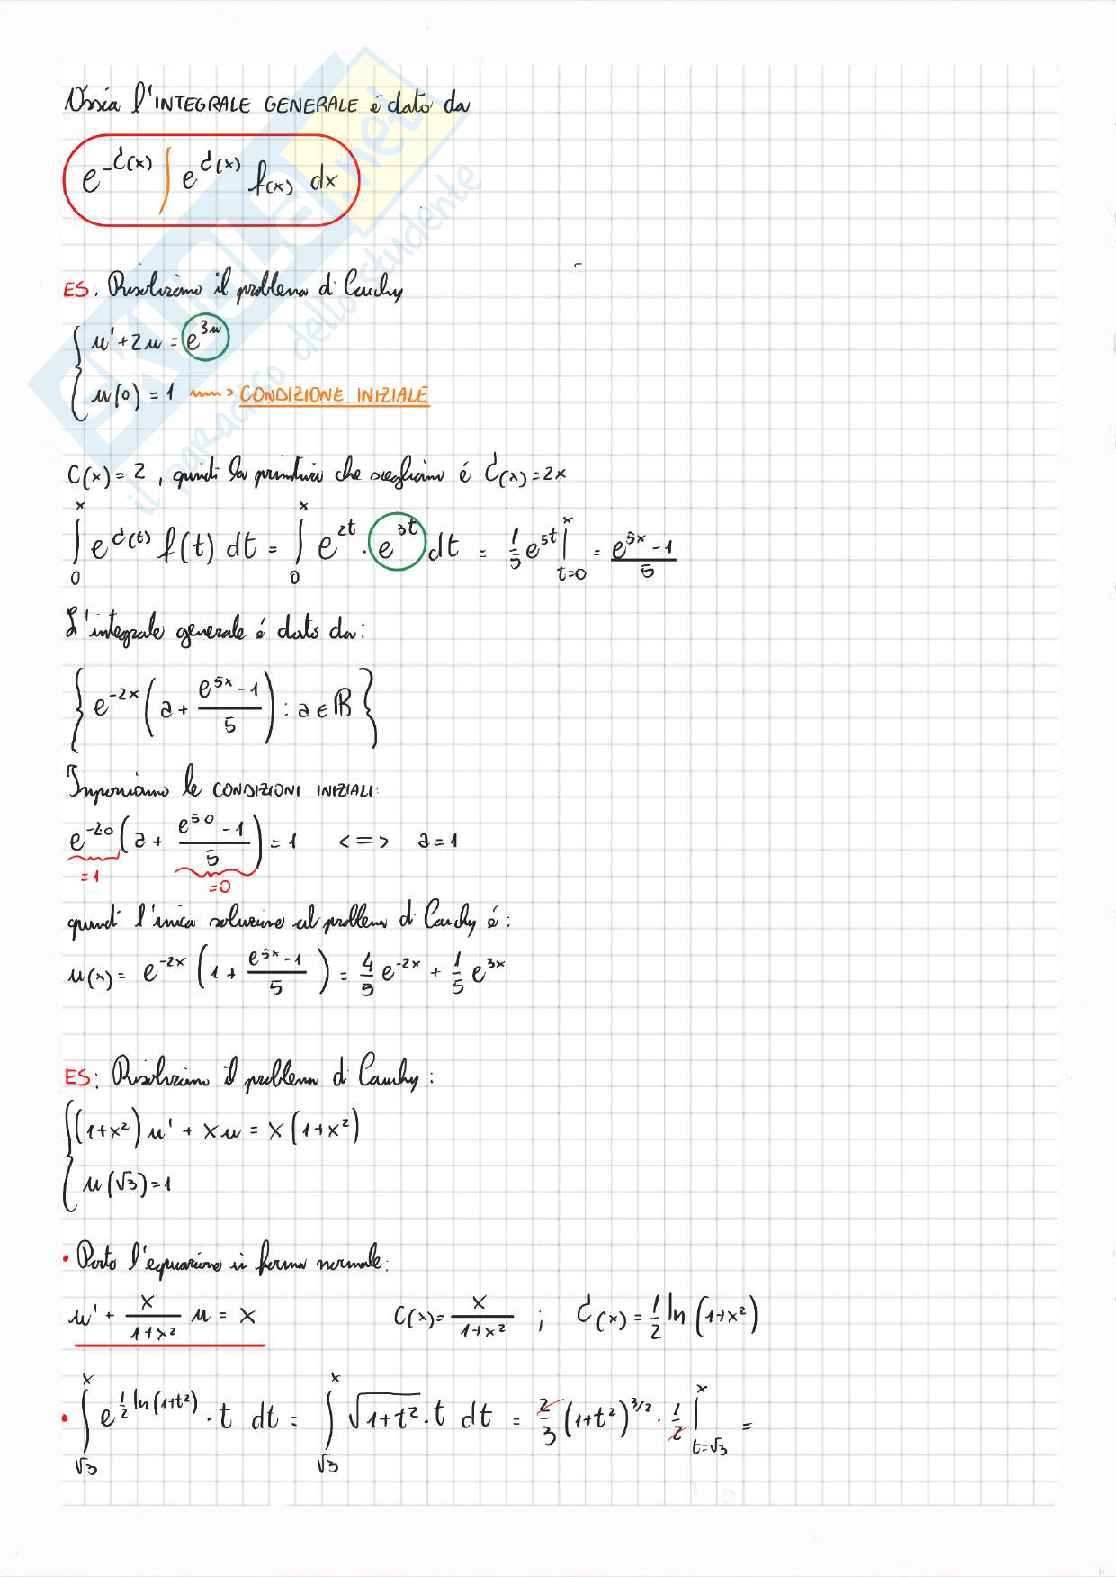 Ossia l'INTEGRALE GENERALE è dato da
e^-C(x) ∫ e^C(x) f(x) dx
ES. Risolviamo il problema di Cauchy
{ u' + 2u = e^3u
{ u(0) = 1 ⟿ CONDIZIONE INIZIALE
C(x) = 2, quindi la primitiva che scegliamo é C(x) = 2x
∫_0^x e^C(t) f(t) dt = ∫_0^x e^2t · e^3t dt = 1/5 e^5t |_t=0^x = (e^5x - 1)/5
L'integrale generale é dato da:
{ e^-2x ( a + (e^5x - 1)/5 ) : a ∈ ℝ }
Imponiamo le CONDIZIONI INIZIALI:
e^-20 ( a + (e^50 - 1)/5 ) = 1 <=> a = 1
=1 =0
quindi l'unica soluzione al problema di Cauchy é:
u(x) = e^-2x ( 1 + (e^5x - 1)/5 ) = 4/5 e^-2x + 1/5 e^3x
ES: Risolviamo il problema di Cauchy:
{ (1+x²) u' + xu = x (1+x²)
{ u(√3) = 1
• Porto l'equazione in forma normale:
u' + x/(1+x²) u = x C(x) = x/(1+x²) ; C(x) = 1/2 ln (1+x²)
• ∫_√3^x e^(1/2 ln(1+t²)) · t dt = ∫_√3^x √(1+t²) · t dt = 2/3 (1+t²)^3/2 · 1/2 |_t=√3^x =
SKUOLA.net
il paradiso dello studente